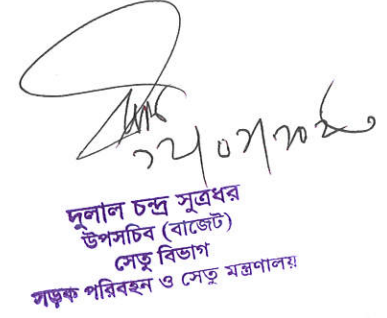 দুলাল চন্দ্র সূত্রধর
উপসচিব (বাজেট)
সেতু বিভাগ
সড়ক পরিবহন ও সেতু মন্ত্রণালয়